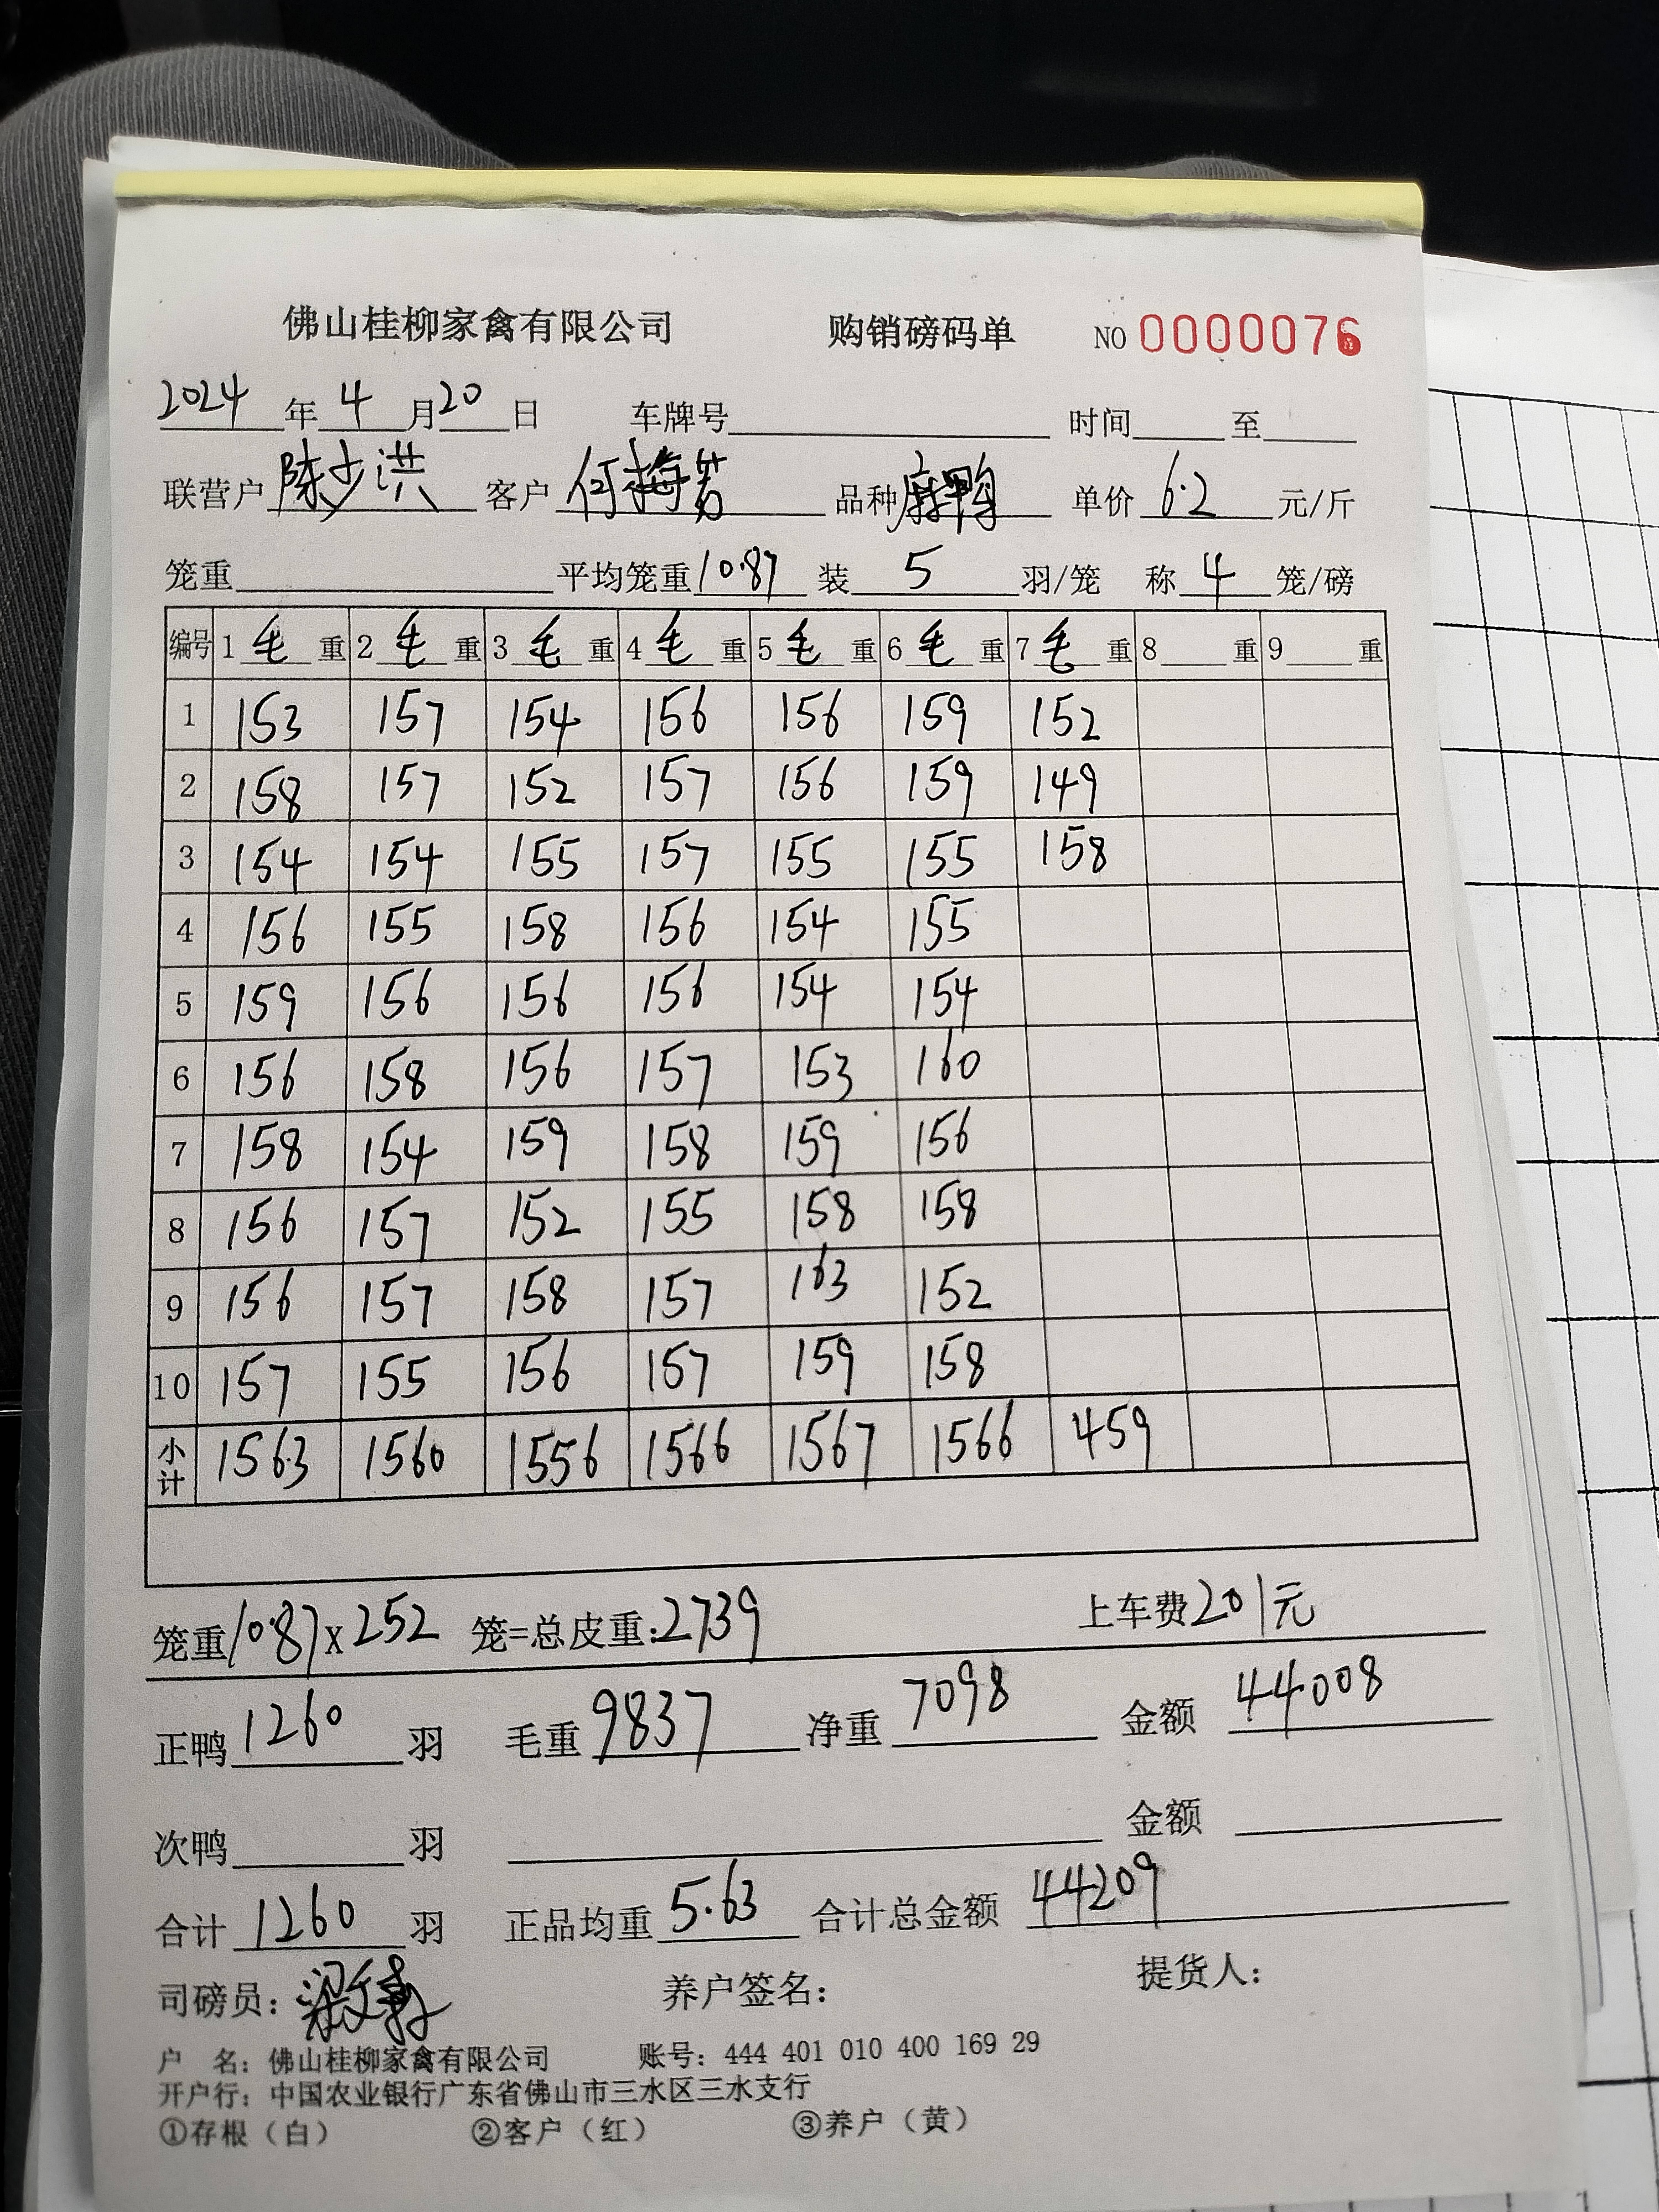 佛山桂柳家禽有限公司 购销磅码单 NO 0000076
2024年4月20日 车牌号 时间 至
联营户 陈少洪 客户 何梅芳 品种 麻鸭 单价 6.2 元/斤
笼重 平均笼重 10.87 装 5 羽/笼 称 4 笼/磅
编号 1 毛 重 2 毛 重 3 毛 重 4 毛 重 5 毛 重 6 毛 重 7 毛 重 8 重 9 重
1 153 157 154 156 156 159 152
2 158 157 152 157 156 159 149
3 154 154 155 157 155 155 158
4 156 155 158 156 154 155
5 159 156 156 156 154 154
6 156 158 156 157 153 160
7 158 154 159 158 159 156
8 156 157 152 155 158 158
9 156 157 158 157 163 152
10 157 155 156 157 159 158
小计 1563 1560 1556 1566 1567 1566 459
笼重 10.87 X 252 笼=总皮重:2739 上车费 201元
正鸭 1260 羽 毛重 9837 净重 7098 金额 44008
次鸭 羽 金额
合计 1260 羽 正品均重 5.63 合计总金额 44209
司磅员: 梁文 养户签名: 提货人:
户 名: 佛山桂柳家禽有限公司 账号: 444 401 010 400 169 29
开户行: 中国农业银行广东省佛山市三水区三水支行
①存根（白） ②客户（红） ③养户（黄）